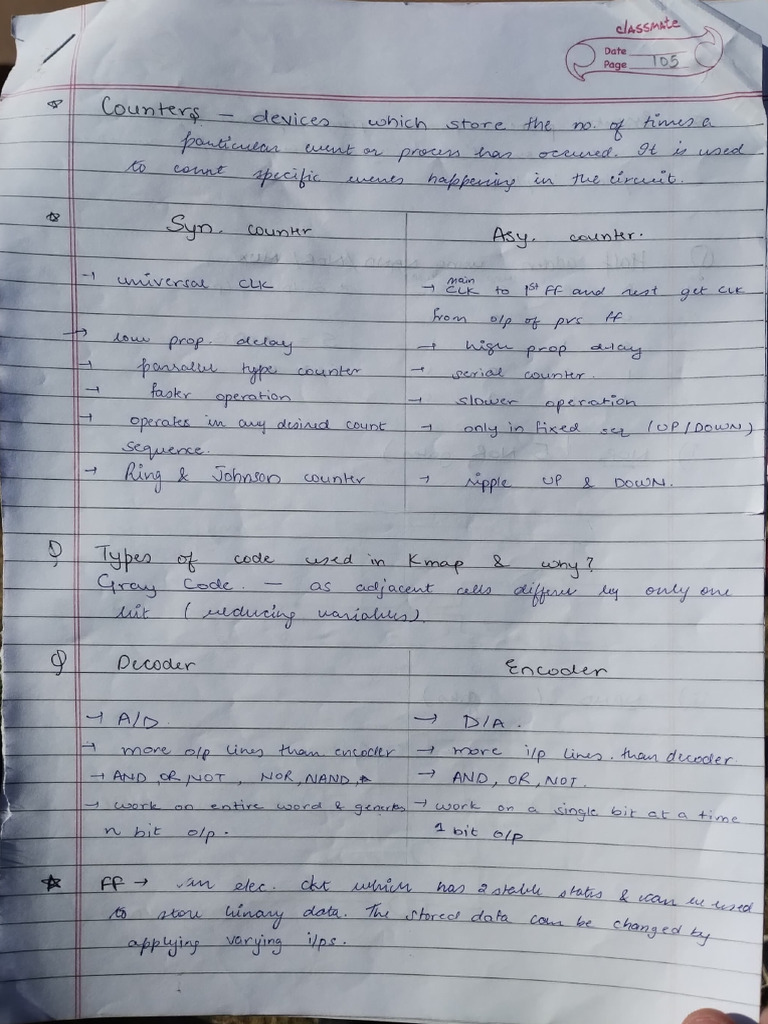 classmate
Date
Page 105
☆ Counters – devices which store the no. of times a
particular event or process has occured. It is used
to count specific events happening in the circuit.
☆ Syn. counter | Asy. counter.
→ universal CLK | → main CLK to 1st FF and rest get CLK
from o/p of prvs ff
→ low prop. delay | → high prop delay
→ parallel type counter | → serial counter.
→ faster operation | → slower operation
→ operates in any desired count | → only in fixed seq (UP/DOWN)
sequence.
→ Ring & Johnson counter | → ripple UP & DOWN.
Q Types of code used in Kmap & why?
Gray Code. – as adjacent cells differ by only one
bit (reducing variables).
Q Decoder | Encoder
→ A/D. | → D/A.
→ more o/p lines than encoder | → more i/p lines. than decoder.
→ AND, OR, NOT, NOR, NAND, | → AND, OR, NOT.
→ work on entire word & generates | → work on a single bit at a time
n bit o/p. | 1 bit o/p
☆ FF → an elec. ckt which has 2 stable states & can be used
to store binary data. The stored data can be changed by
applying varying i/ps.